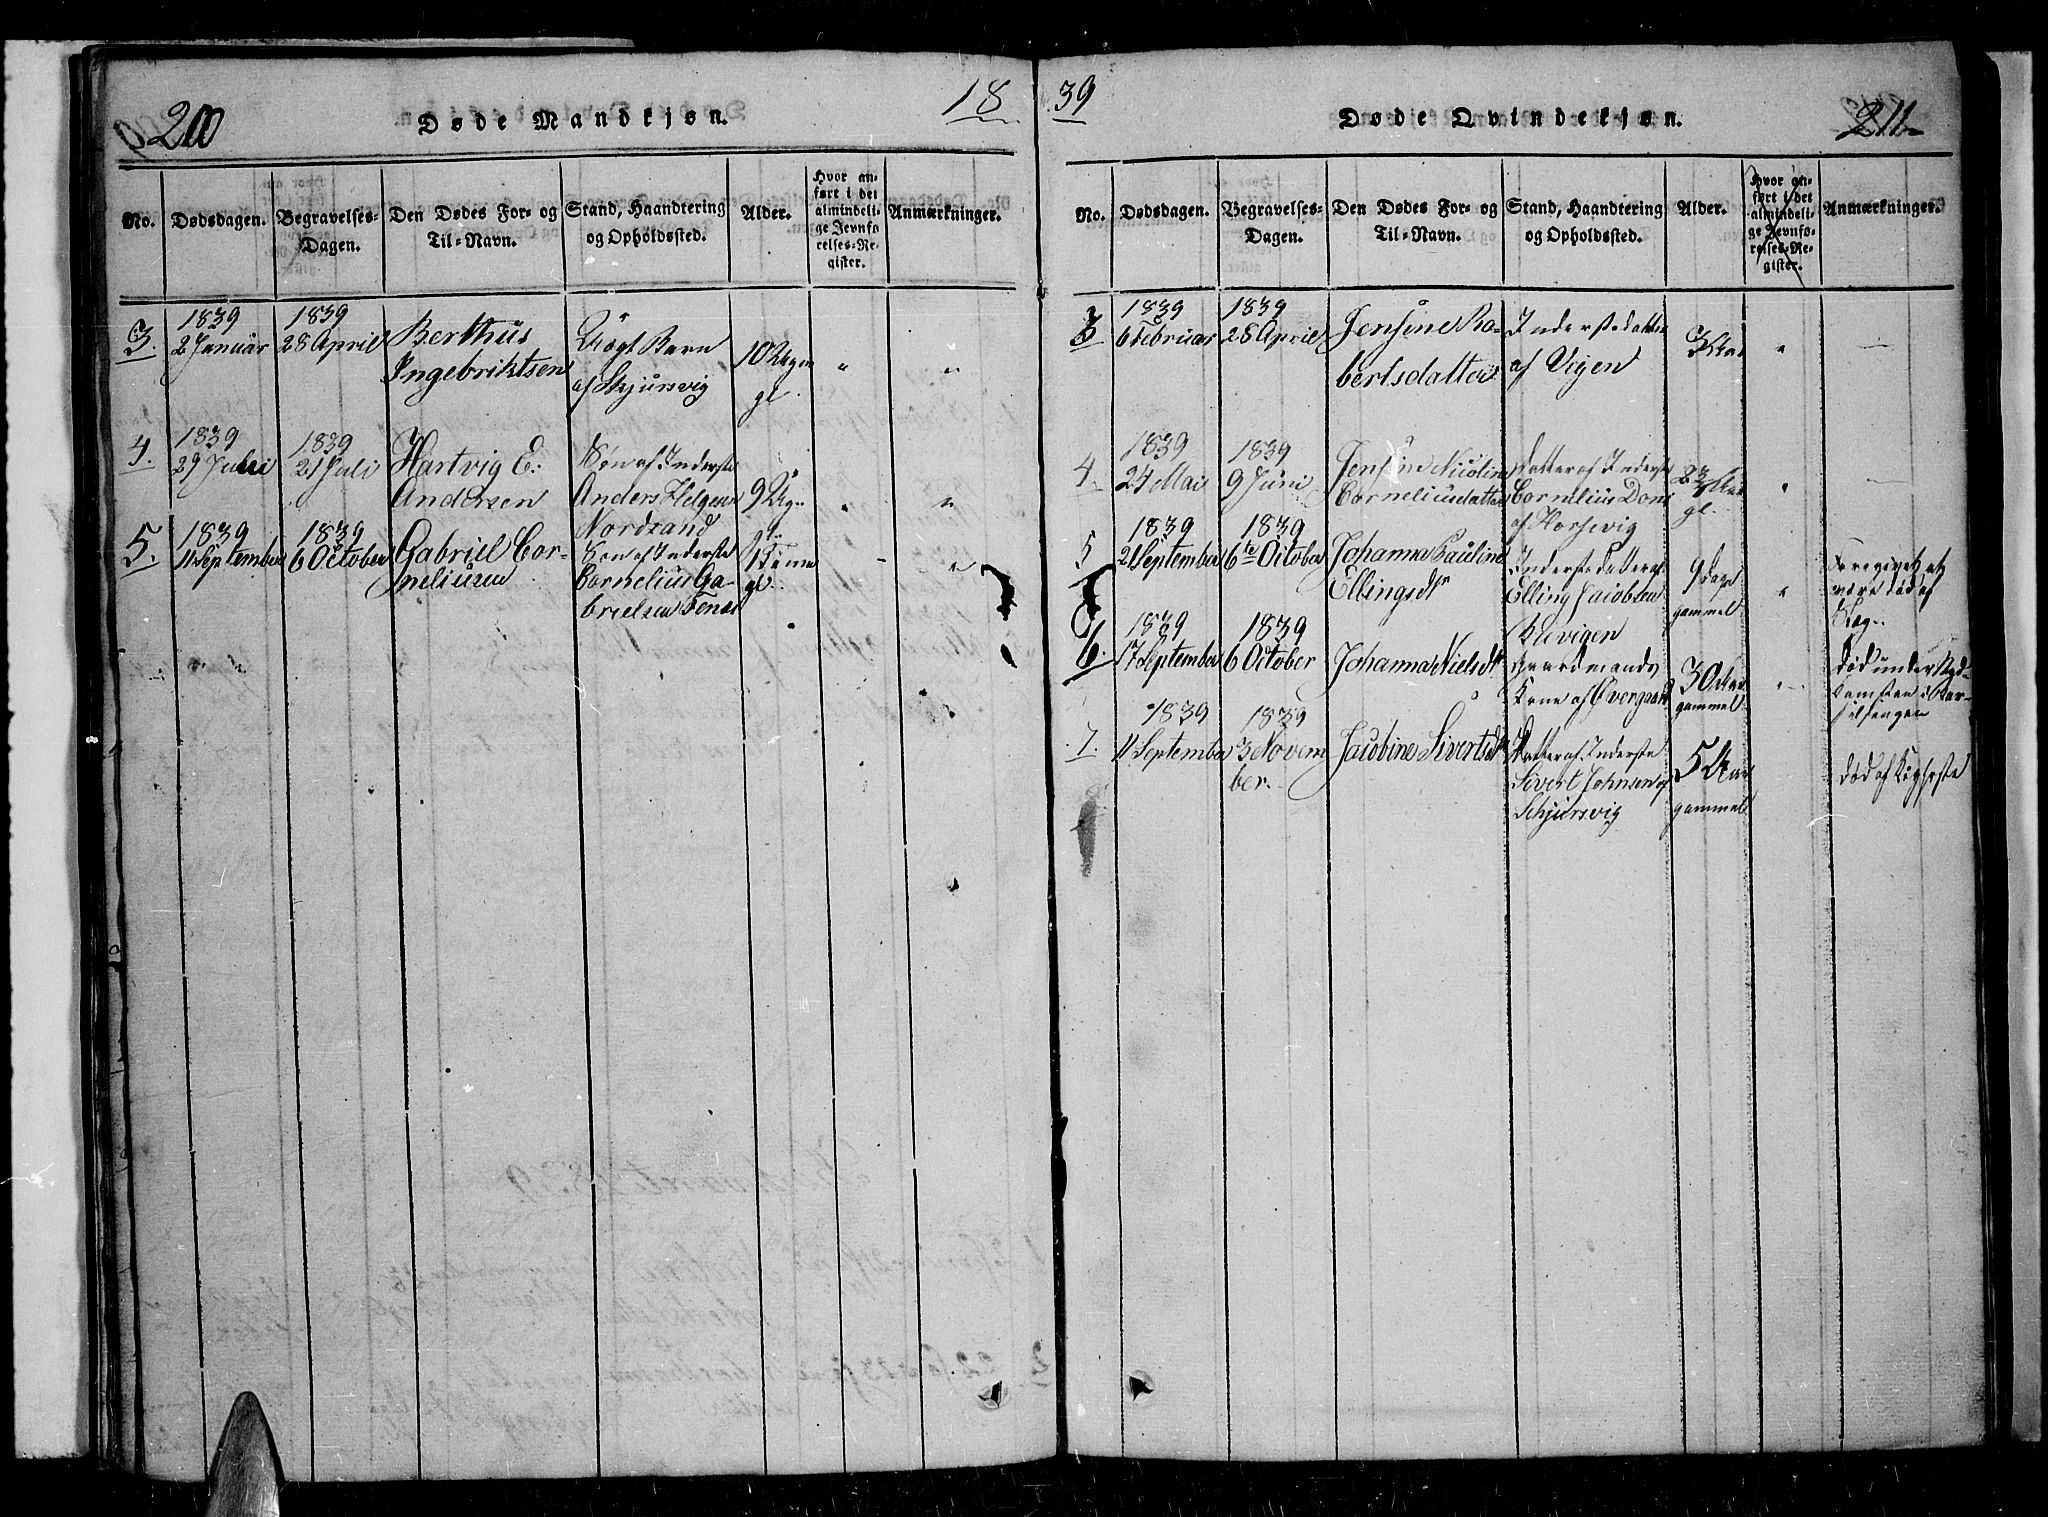 200
18
39
211
Døde Mandkjøn.
No.
Dødsdagen.
Begravelses-
Dagen.
Den Dødes For- og
Til-Navn.
Stand, Haandtering
og Opholdssted.
Alder.
Hvor an-
ført i det
almindeli-
ge Jevnfø
relses-Re-
gister.
Anmærkninger.
3.
1839
2 Januar
1839
28 April
Berthus
Ingebriktsen
Barn
af Skjursvig
10 Uger
gl.
4.
1839
29 Juli
1839
21 Juli
Hartvig E.
Andersen
Søn af Inderste
Anders Helgesen
Nordsand
9 Uger
5.
1839
11 September
1839
6 October
Gabriel Cor-
neliusen
Søn af Inderste
Cornelius Ga-
brielsen
gl.
Døde Qvindekjøn.
No.
Dødsdagen.
Begravelses-
Dagen.
Den Dødes For- og
Til-Navn.
Stand, Haandtering
og Opholdssted.
Alder.
Hvor an-
ført i det
almindeli-
ge Jevnfø-
relses-Re-
gister.
Anmærkninger.
3
1839
6 Februar
1839
28 April
Jensine Ro-
bertsdatter
Inderstedatter
af Vigen
3 Aar
4
1839
24 Mai
1839
9 Juni
Jensine Nicoline
Corneliusdatter
Datter af Inderste
Cornelius
af
gl.
5
1839
21 September
1839
6te October
Johanna Pauline
Ellingsdtr
Inderste Datter af
Elling Jacobsen
9 Dage
gammel
være død af
6.
1839
17 September
1839
6 October
Johanna Nielsdtr
Gaardmands
Kone af Overgaard
30 Aar
gammel
Død under
7.
1839
11 September
1839
3 Novem
ber.
Jacobine Sivertsdtr
Datter af Inderste
Sivert Johnsen af
Schjursvig
5 Aar
gammel
død af Kighoste